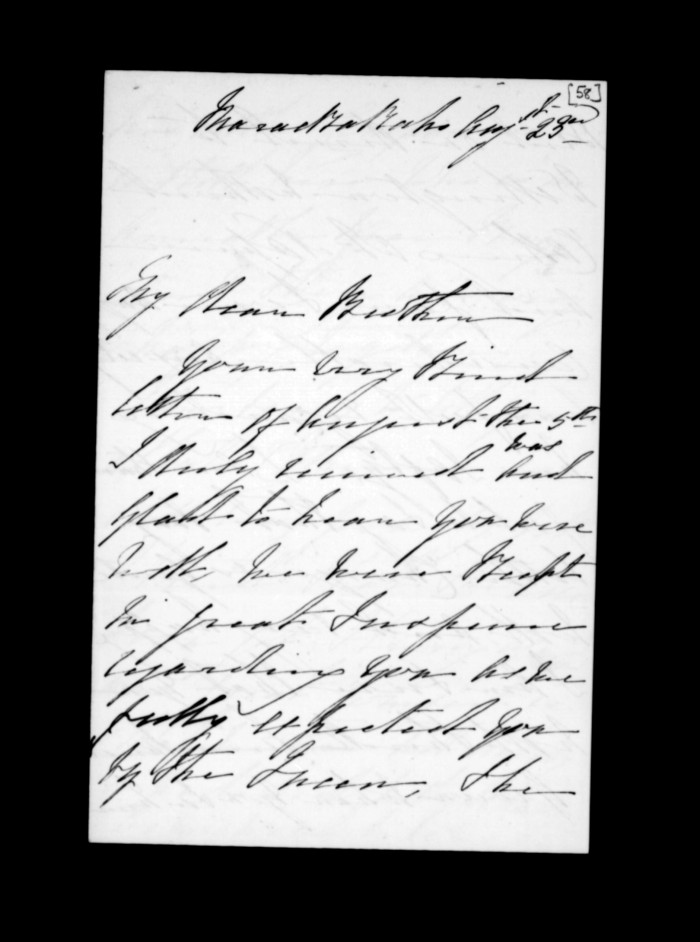 [58]
Maraekakaho Augst 23rd
My Dear Brother
Your very Kind
letter of August the 5th
I duly received was and
glad to hear you were
well, we were Kept
in great Suspense
regarding you as we
fully expected you
by the
The